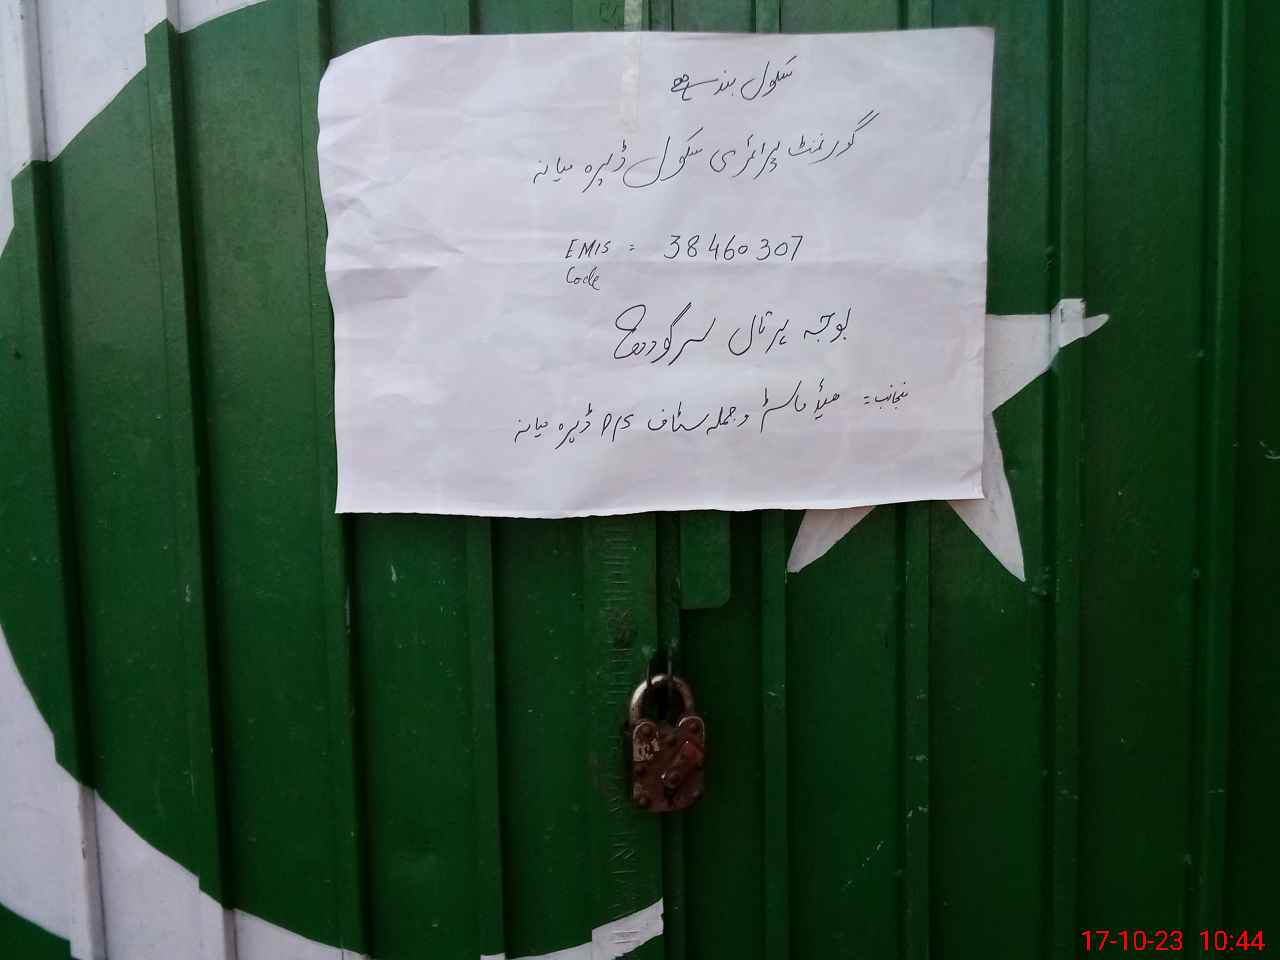 سکول بند ہے
گورنمنٹ پرائمری سکول ڈیرہ میانہ
EMIS = 38460307
Code
بوجہ ہڑتال سرگودھا
منجانب = ہیڈ ماسٹر و جملہ سٹاف P/S ڈیرہ میانہ
17-10-23 10:44